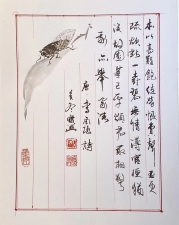 本以高難飽徒勞恨費聲五更
疏欲斷一樹碧無情薄宦梗猶
泛故園蕪已平煩君最相警
我亦舉家清
唐李商隱詩